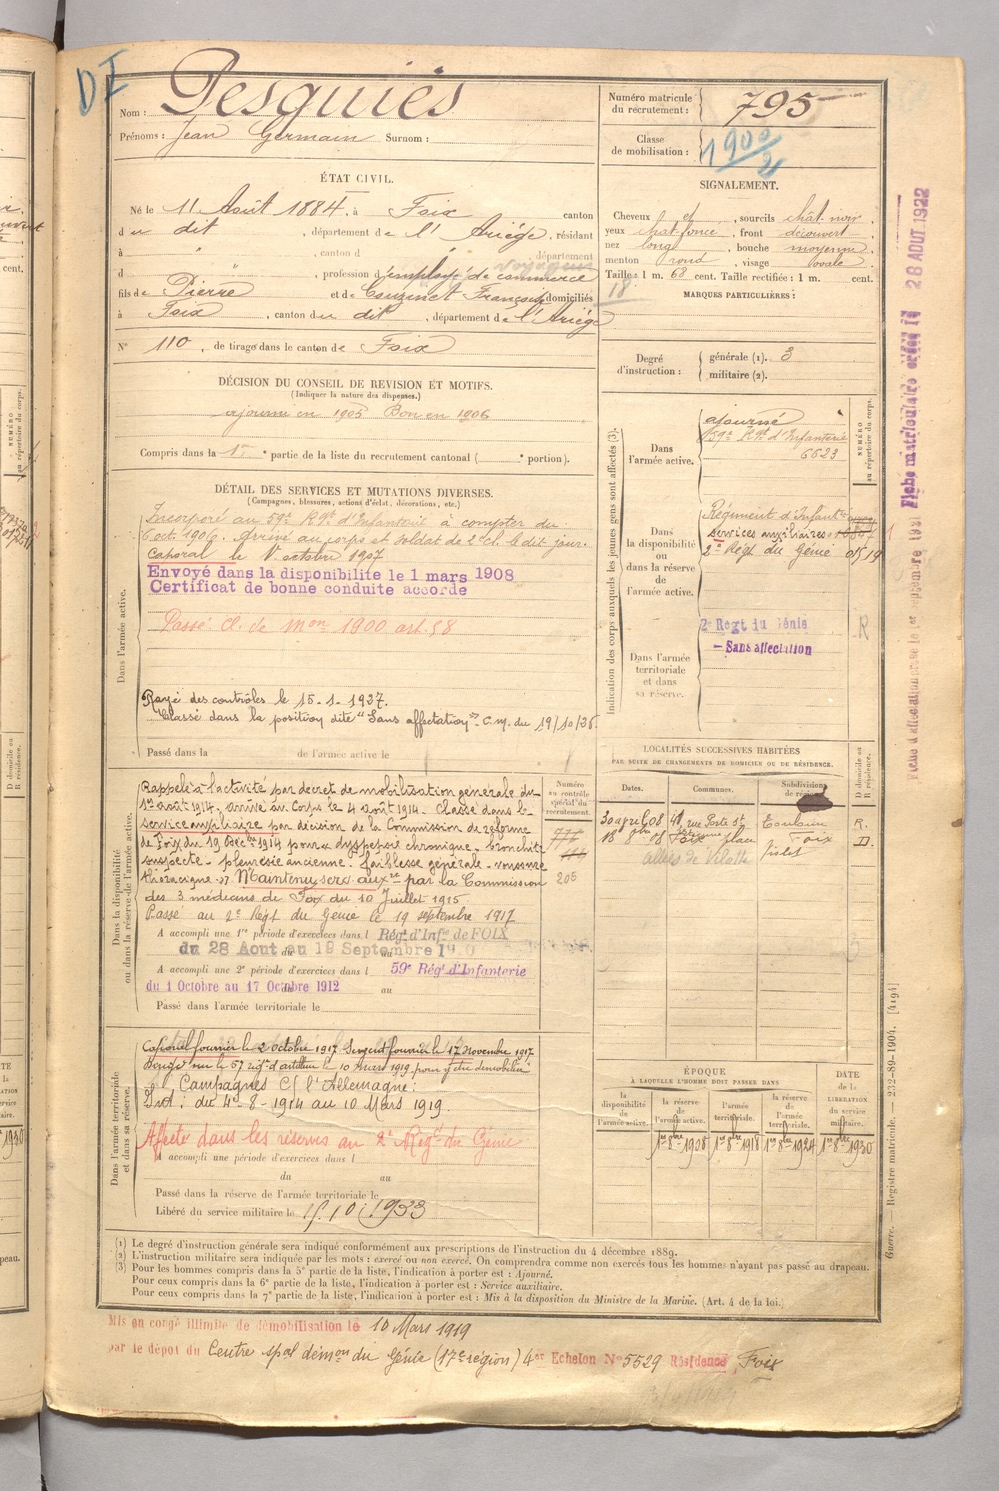 DI
Nom : Pesquiès
Prénoms : Jean Germain Surnom :
Numéro matricule
du recrutement : 795
Classe
de mobilisation : 1900/2
ÉTAT CIVIL.
Né le 11 Août 1884, à Foix canton
du dit, département de l'Ariège, résidant
à " , canton d " département
d " , profession d'employé de commerce
voyageur
fils de Pierre et de Couzinet Françoise domiciliés
à Foix, canton du dit, département de l'Ariège
N° 110, de tirage dans le canton de Foix
SIGNALEMENT.
Cheveux et, sourcils chat. noir,
yeux chat foncé, front découvert,
nez long, bouche moyenne,
menton rond, visage ovale.
Taille : 1 m. 68 cent. Taille rectifiée : 1 m. cent.
18
MARQUES PARTICULIÈRES :
Degré
d'instruction :
générale (1). 3
militaire (2).
DÉCISION DU CONSEIL DE REVISION ET MOTIFS.
(Indiquer la nature des dispenses.)
ajourné en 1905 Bon en 1906
Compris dans la 1re partie de la liste du recrutement cantonal ( e portion).
DÉTAIL DES SERVICES ET MUTATIONS DIVERSES.
(Campagnes, blessures, actions d'éclat, décorations, etc.)
Dans l'armée active.
Incorporé au 59e Rgt d'Infanterie à compter du
6 oct. 1906. Arrivé au corps et soldat de 2e cl. le dit jour.
Caporal le 1er octobre 1907
Envoyé dans la disponibilité le 1 mars 1908
Certificat de bonne conduite accordé
Passé cl. de mon 1900 art. 58
Rayé des contrôles le 15-1-1937.
Classé dans la position dite "Sans affectation" C.M. du 19/10/36.
Passé dans la de l'armée active le
Indication des corps auxquels les jeunes gens sont affectés (3).
Dans
l'armée active.
ajourné
59e Rgt d'Infanterie
6623
NUMÉRO
au répertoire du corps.
Dans
la disponibilité
ou
dans la réserve
de
l'armée active.
Régiment d'Infante
services auxiliaires
2e Régt du Génie 01519
Dans l'armée
territoriale
et dans
sa réserve.
2e Regt du Génie
R
— Sans affectation
Fiche d'affectation créée le 1er septembre 1931
Fiche matriculaire créée le 28 AOUT 1922
LOCALITÉS SUCCESSIVES HABITÉES
PAR SUITE DE CHANGEMENTS DE DOMICILE OU DE RÉSIDENCE.
D domicile ou
R résidence.
Dates. Communes. Subdivisions
de région.
30 april 08 rue Porte St Toulouse R.
Etienne
Foix place Foix D.
allées de Vilotte
Dans la disponibilité
ou dans la réserve de l'armée active.
Numéro
au contrôle
spécial du
recrutement.
205
Rappelé à l'activité par décret de mobilisation générale du
1er août 1914. arrivé au Corps le 4 août 1914. Classé dans le
service auxiliaire par décision de la Commission de réforme
de Foix du 19 Déce 1914 pour dyspepsie chronique - bronchite
suspecte - pleurésie ancienne. faiblesse générale -
thoracique. Maintenu serv. auxre par la Commission
des 3 médecins de Foix du 10 Juillet 1915.
Passé au 2e Régt du Génie le 19 septembre 1917
A accompli une 1re période d'exercices dans l Régt d'Infie de FOIX
du 28 Aout au 19 Septembre 1910
A accompli une 2e période d'exercices dans l 59e Régt d'Infanterie
du 1 Octobre au 17 Octobre 1912
Passé dans l'armée territoriale le
Dans l'armée territoriale
et dans sa réserve.
Caporal fourrier le 2 octobre 1917 Sergent fourrier le 17 novembre 1917
Dirigé sur le 57 régt d'artillerie le 10 mars 1919 pour y être démobilisé
Campagnes C/ l'Allemagne :
Int : du 4-8-1914 au 10 Mars 1919.
Affecté dans les réserves au 2e Régt du Génie
A accompli une période d'exercices dans l
du au
Passé dans la réserve de l'armée territoriale le
Libéré du service militaire le 15.10.1933
ÉPOQUE
À LAQUELLE L'HOMME DOIT PASSER DANS
DATE
de la
LIBÉRATION
du service
militaire.
la
disponibilité
de
l'armée active.
la réserve
de
l'armée active.
l'armée
territoriale.
la réserve
de
l'armée
territoriale.
1er 8bre 1908 1er 8bre 1918 1er 8bre 1924 1er 8bre 1930
(1) Le degré d'instruction générale sera indiqué conformément aux prescriptions de l'instruction du 4 décembre 1889.
(2) L'instruction militaire sera indiquée par les mots : exercé ou non exercé. On comprendra comme non exercés tous les hommes n'ayant pas passé au drapeau.
(3) Pour les hommes compris dans la 5e partie de la liste, l'indication à porter est : Ajourné.
Pour ceux compris dans la 6e partie de la liste, l'indication à porter est : Service auxiliaire.
Pour ceux compris dans la 7e partie de la liste, l'indication à porter est : Mis à la disposition du Ministre de la Marine. (Art. 4 de la loi.)
Guerre. — Registre matricule. — 232-89-1904. [4194]
Mis en congé illimité de démobilisation le 10 Mars 1919
par le dépot du Centre spal démon du Génie (17e région) 4er Echelon N° 5529 Résidence Foix